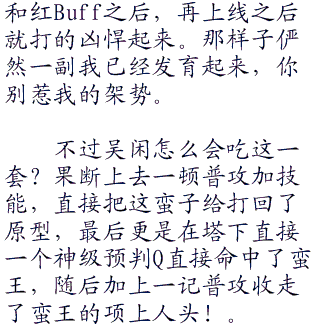 和红Buff之后，再上线之后
就打的凶悍起来。那样子俨
然一副我已经发育起来，你
别惹我的架势。
不过吴闲怎么会吃这一
套？果断上去一顿普攻加技
能，直接把这蛮子给打回了
原型，最后更是在塔下直接
一个神级预判Q直接命中了蛮
王，随后加上一记普攻收走
了蛮王的项上人头！。